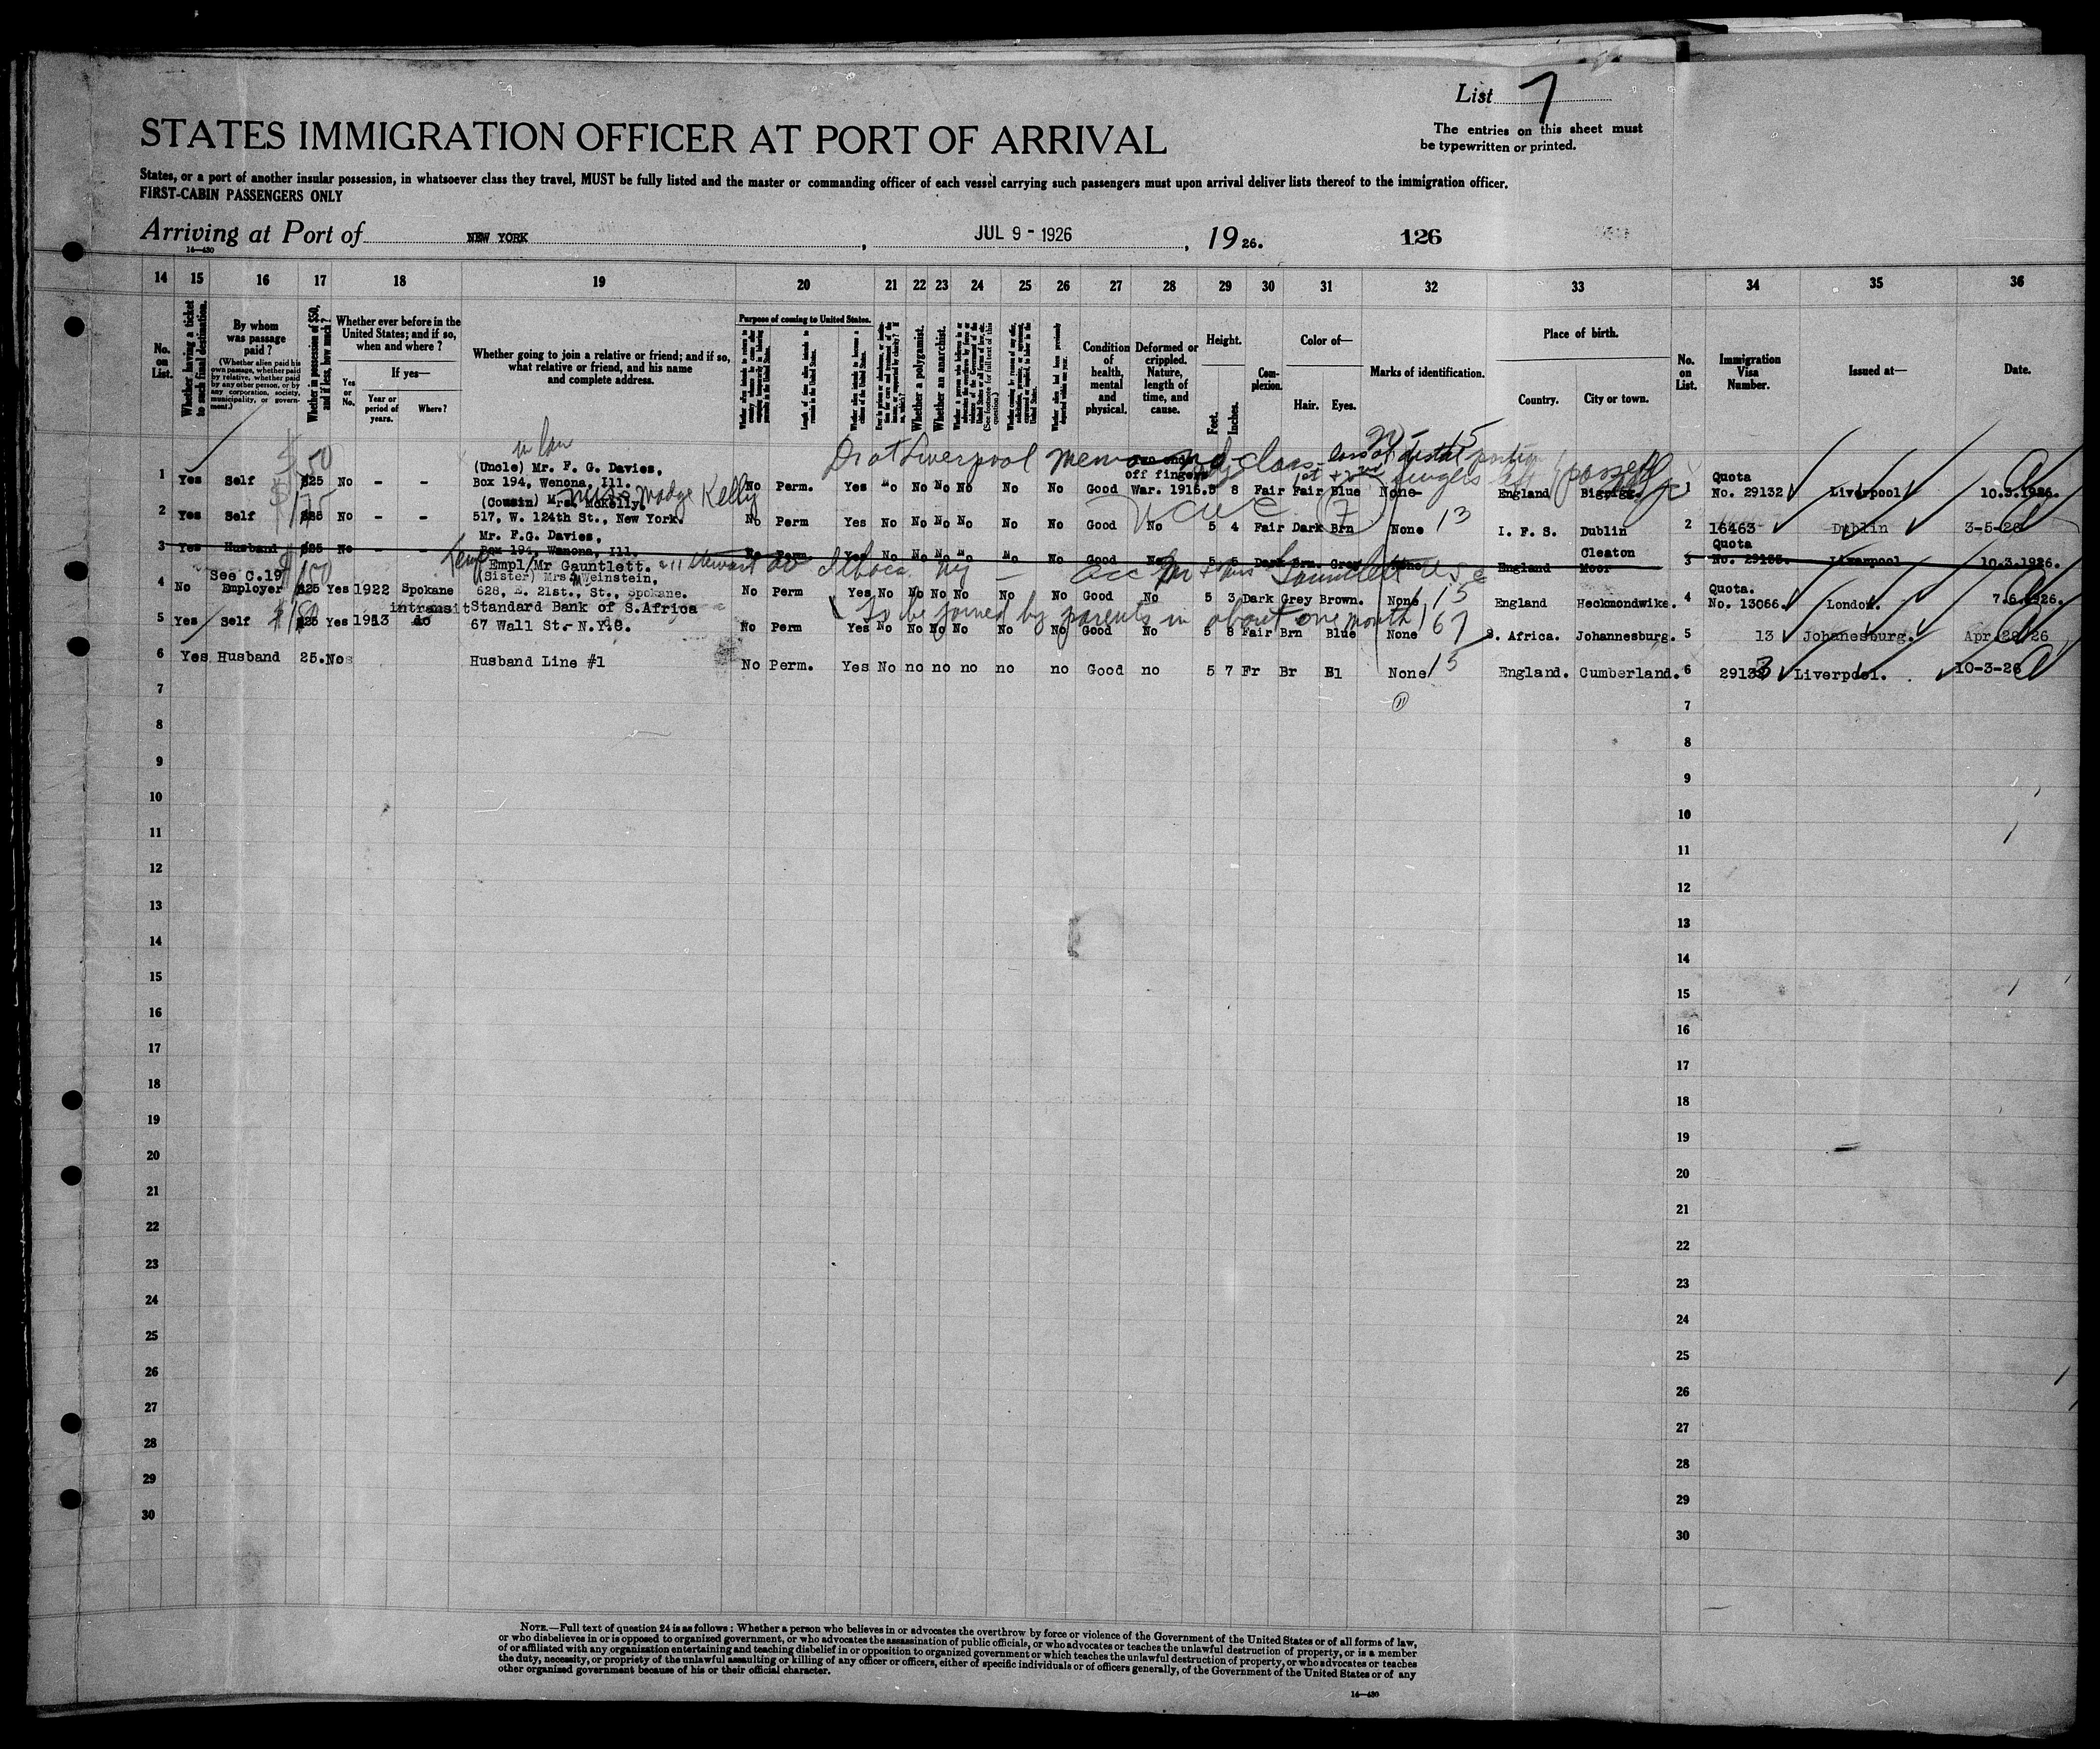 List 7
The entries on this sheet must
be typewritten or printed.
STATES IMMIGRATION OFFICER AT PORT OF ARRIVAL
States, or a port of another insular possession, in whatsoever class they travel, MUST be fully listed and the master or commanding officer of each vessel carrying such passengers must upon arrival deliver lists thereof to the immigration officer.
FIRST-CABIN PASSENGERS ONLY
Arriving at Port of NEW YORK, JUL 9 - 1926, 19 26. 126
14—430
14 15 16 17 18 19 20 21 22 23 24 25 26 27 28 29 30 31 32 33 34 35 36
No. on List.
Whether having a ticket to such final destination.
By whom was passage paid?
(Whether alien paid his own passage, whether paid by relative, whether paid by any other person, or by any corporation, society, municipality, or government.)
Whether in possession of $50, and if less, how much?
Whether ever before in the United States; and if so, when and where?
Yes or No.
If yes—
Year or period of years.
Where?
Whether going to join a relative or friend; and if so, what relative or friend, and his name and complete address.
Purpose of coming to United States.
Length of time alien intends to remain in the United States.
Whether alien intends to become a citizen of the United States.
Whether a polygamist.
Whether an anarchist.
Condition of health, mental and physical.
Deformed or crippled. Nature, length of time, and cause.
Height.
Feet. Inches.
Complexion.
Color of—
Hair. Eyes.
Marks of identification.
Place of birth.
Country. City or town.
No. on List.
Immigration Visa Number.
Issued at—
Date.
in law
Dr at Liverpool
$50
1 Yes Self $25 No - - (Uncle) Mr. F. G. Davies,
Box 194, Wenona, Ill. No Perm. Yes No No No No No No Good off fingers War. 1916. 5 8 Fair Fair Blue None 15 England Bigrigg. 1 Quota No. 29132 Liverpool 10.3.1926.
Miss Madge Kelly
$175
2 Yes Self $25 No - - (Cousin) Mrs. McKelly,
517, W. 124th St., New York. No Perm Yes No No No No No No Good No 5 4 Fair Dark Brn None 13 I. F. S. Dublin 2 16463 Dublin 3-5-26
3 Yes Husband $25 No - - Mr. F.G. Davies,
Box 194, Wenona, Ill. No Perm. Yes No No No No No No Good No 5 5 Dark Brn. Grey None England Cleaton Moor 3 Quota No. 29133. Liverpool 10.3.1926.
211 Stewart av Ithaca NY — acc Mr + Mrs Gauntlett USC
4 No See C.19 Employer $25 Yes 1922 Spokane Empl/Mr Gauntlett.
(Sister) Mrs. Weinstein,
628, E. 21st., St., Spokane. No Perm Yes No No No No No No Good No 5 3 Dark Grey Brown. None 15 England Heckmondwike. 4 Quota. No. 13066. London. 7.6.1926.
To be joined by parents in about one month
5 Yes Self $25 Yes 1913 intransit do Standard Bank of S.Africa
67 Wall St.- N.Y.C. No Perm Yes No No No No No No Good No 5 8 Fair Brn Blue None 67 S. Africa. Johannesburg. 5 13 Johanesburg. Apr 28/26
6 Yes Husband 25. No Husband Line #1 No Perm. Yes No no no no no no Good no 5 7 Fr Br Bl None 15 England. Cumberland. 6 29133 Liverpool. 10-3-26
7 7
8 8
9 9
10 10
11 11
12 12
13 13
14 14
15 15
16 16
17 17
18 18
19 19
20 20
21 21
22 22
23 23
24 24
25 25
26 26
27 27
28 28
29 29
30 30
NOTE.—Full text of question 24 is as follows: Whether a person who believes in or advocates the overthrow by force or violence of the Government of the United States or of all forms of law,
or who disbelieves in or is opposed to organized government, or who advocates the assassination of public officials, or who advocates or teaches the unlawful destruction of property, or is a member
of or affiliated with any organization entertaining and teaching disbelief in or opposition to organized government or which teaches the unlawful destruction of property, or who advocates or teaches
the duty, necessity, or propriety of the unlawful assaulting or killing of any officer or officers, either of specific individuals or of officers generally, of the Government of the United States or of any
other organized government because of his or their official character.
14—430